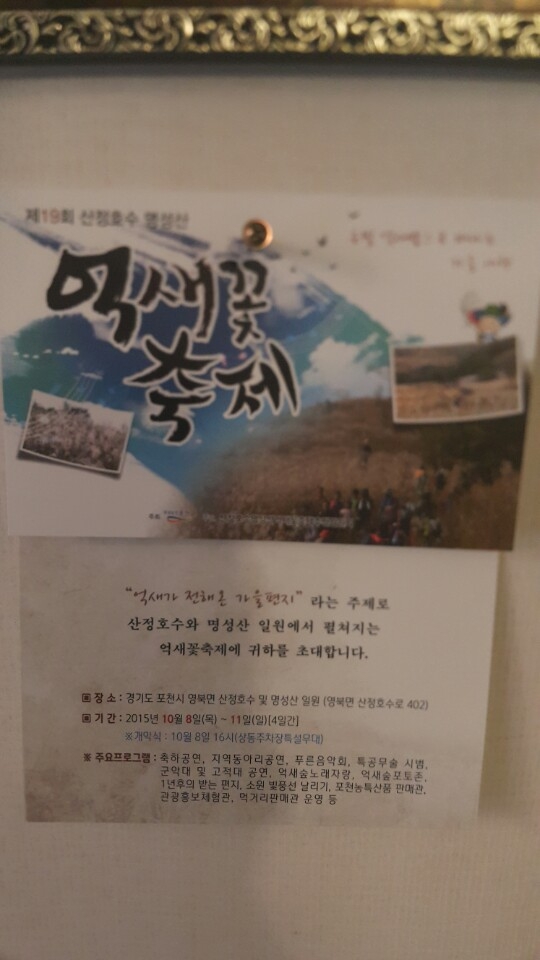 제19회 산정호수 명성산
억새꽃
축제
"억새가 전해온 가을편지" 라는 주제로
산정호수와 명성산 일원에서 펼쳐지는
억새꽃축제에 귀하를 초대합니다.
▣ 장 소 : 경기도 포천시 영북면 산정호수 및 명성산 일원 (영북면 산정호수로 402)
▣ 기 간 : 2015년 10월 8일(목) ~ 11일(일)[4일간]
※개막식 : 10월 8일 16시(상동주차장특설무대)
※ 주요프로그램 : 축하공연, 지역동아리공연, 푸른음악회, 특공무술 시범,
군악대 및 고적대 공연, 억새숲노래자랑, 억새숲포토존,
1년후의 받는 편지, 소원 빛풍선 날리기, 포천농특산품 판매관,
관광홍보체험관, 먹거리판매관 운영 등